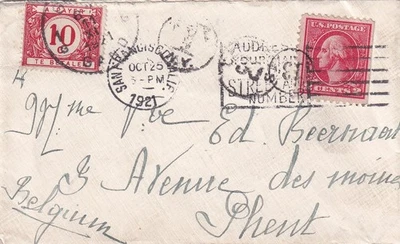 A PAYER
10
TE BETALEN
SAN FRANCISCO, CALIF.
OCT 25
5-PM
1921
T
ADDRESS
YOUR MAIL
STREET AND
NUMBER
U.S. POSTAGE
CENTS 2
Mme Vve Ed Beernaert
3 Avenue des moines
Ghent
Belgium